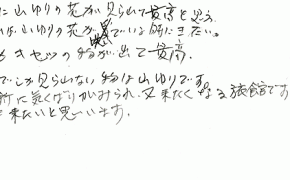 に山ゆりの花が見られて最高と思う
は山ゆりの花が咲いている時にきたい。
もキセツの物が出て最高。
でしか見られない物は山ゆりです。
所に気くばりがみられ、又来たくなる旅館です
来たいと思います。